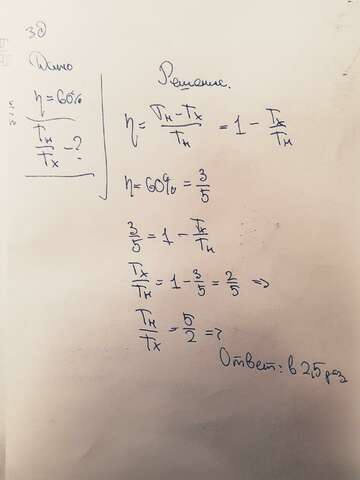 3)
Дано
η = 60%
Tн/Tх - ?
Решение.
η = (Tн - Tх)/Tн = 1 - Tх/Tн
η = 60% = 3/5
3/5 = 1 - Tх/Tн
Tх/Tн = 1 - 3/5 = 2/5 =>
Tн/Tх = 5/2 =>
Ответ: в 2,5 раз